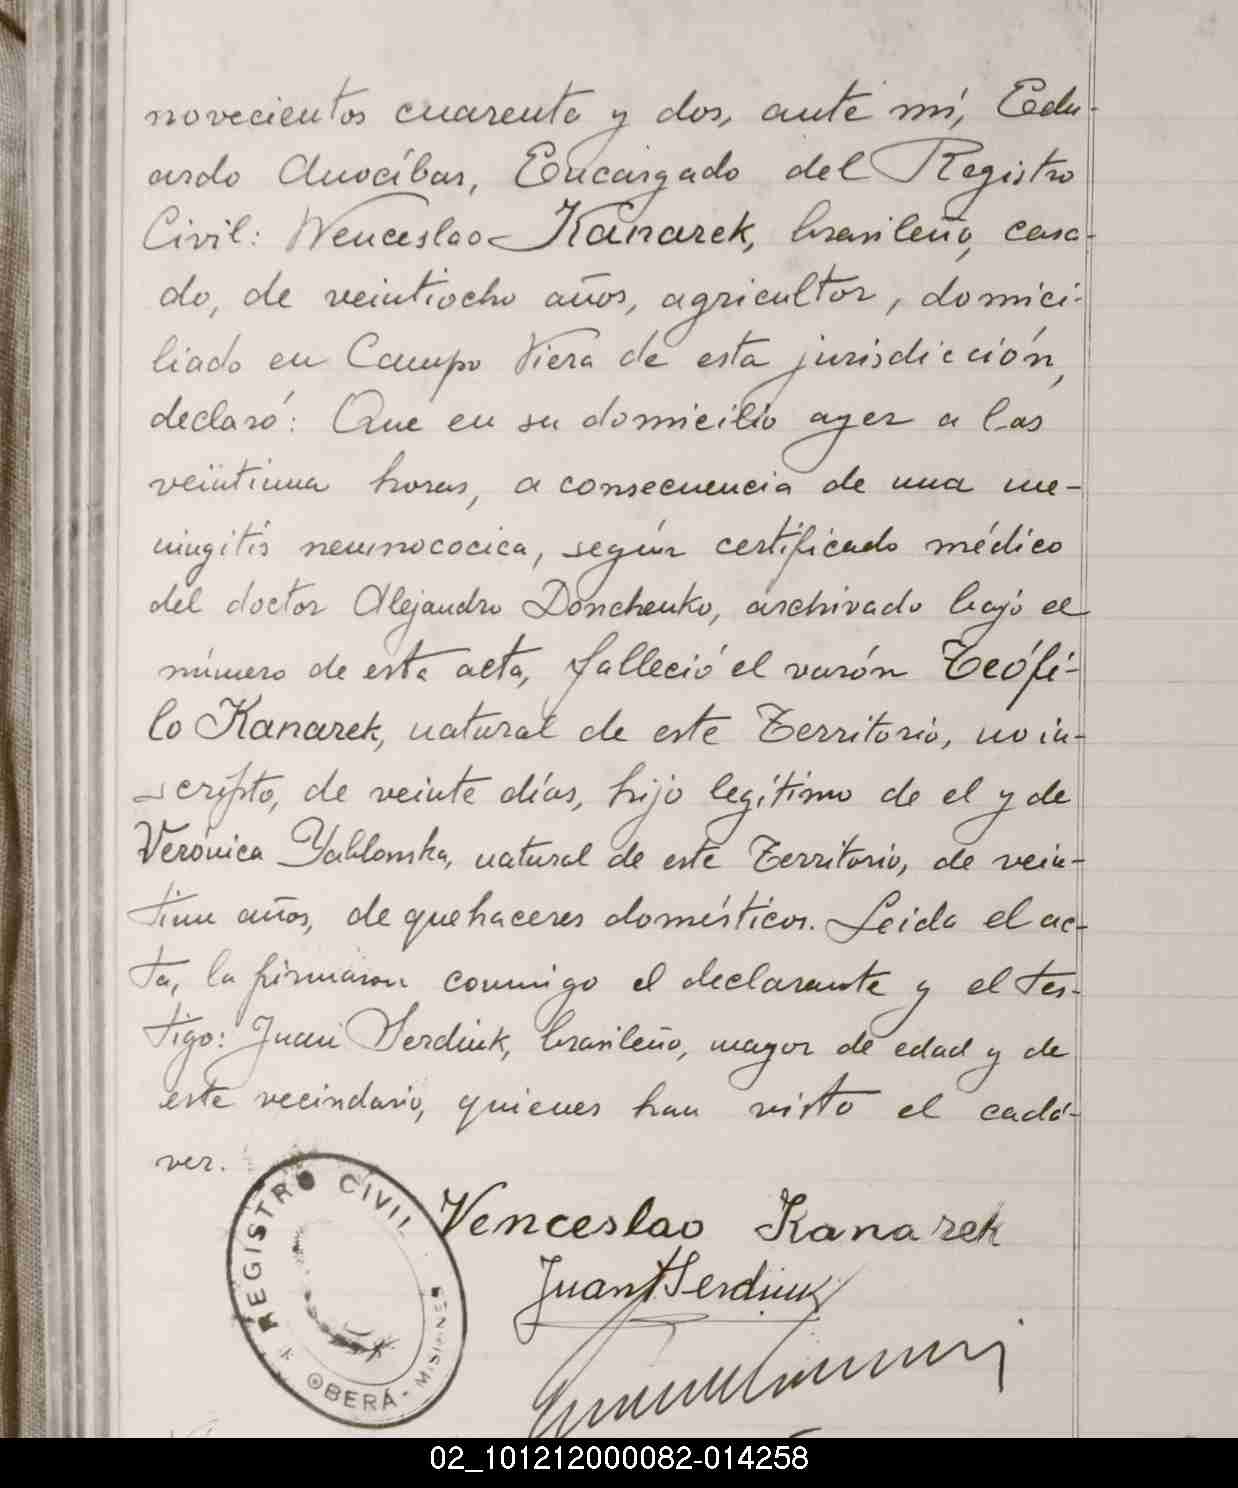 novecientos cuarenta y dos, ante mí, Edu-
ardo Auocíbar, Encargado del Registro
Civil: Wenceslao Kanarek, brasileño, casa-
do, de veintiocho años, agricultor, domici-
liado en Campo Viera de esta jurisdicción,
declaró: Que en su domicilio ayer a las
veintiuna horas, a consecuencia de una me-
ningitis neumococica, según certificado médico
del doctor Alejandro Donchenko, archivado bajo el
número de esta acta, falleció el varón Teófi-
lo Kanarek, natural de este Territorio, no in-
scripto, de veinte días, hijo legítimo de el y de
Verónica Yablonska, natural de este Territorio, de vein-
tiun años, de quehaceres domésticos. Leida el ac-
ta, la firmaron conmigo el declarante y el tes-
tigo: Juan Serdiuk, brasileño, mayor de edad y de
este vecindario, quienes han visto el cadá-
ver.
REGISTRO CIVIL
OBERÁ - MISIONES
Venceslao Kanarek
Juan Serdiuk
02_101212000082-014258